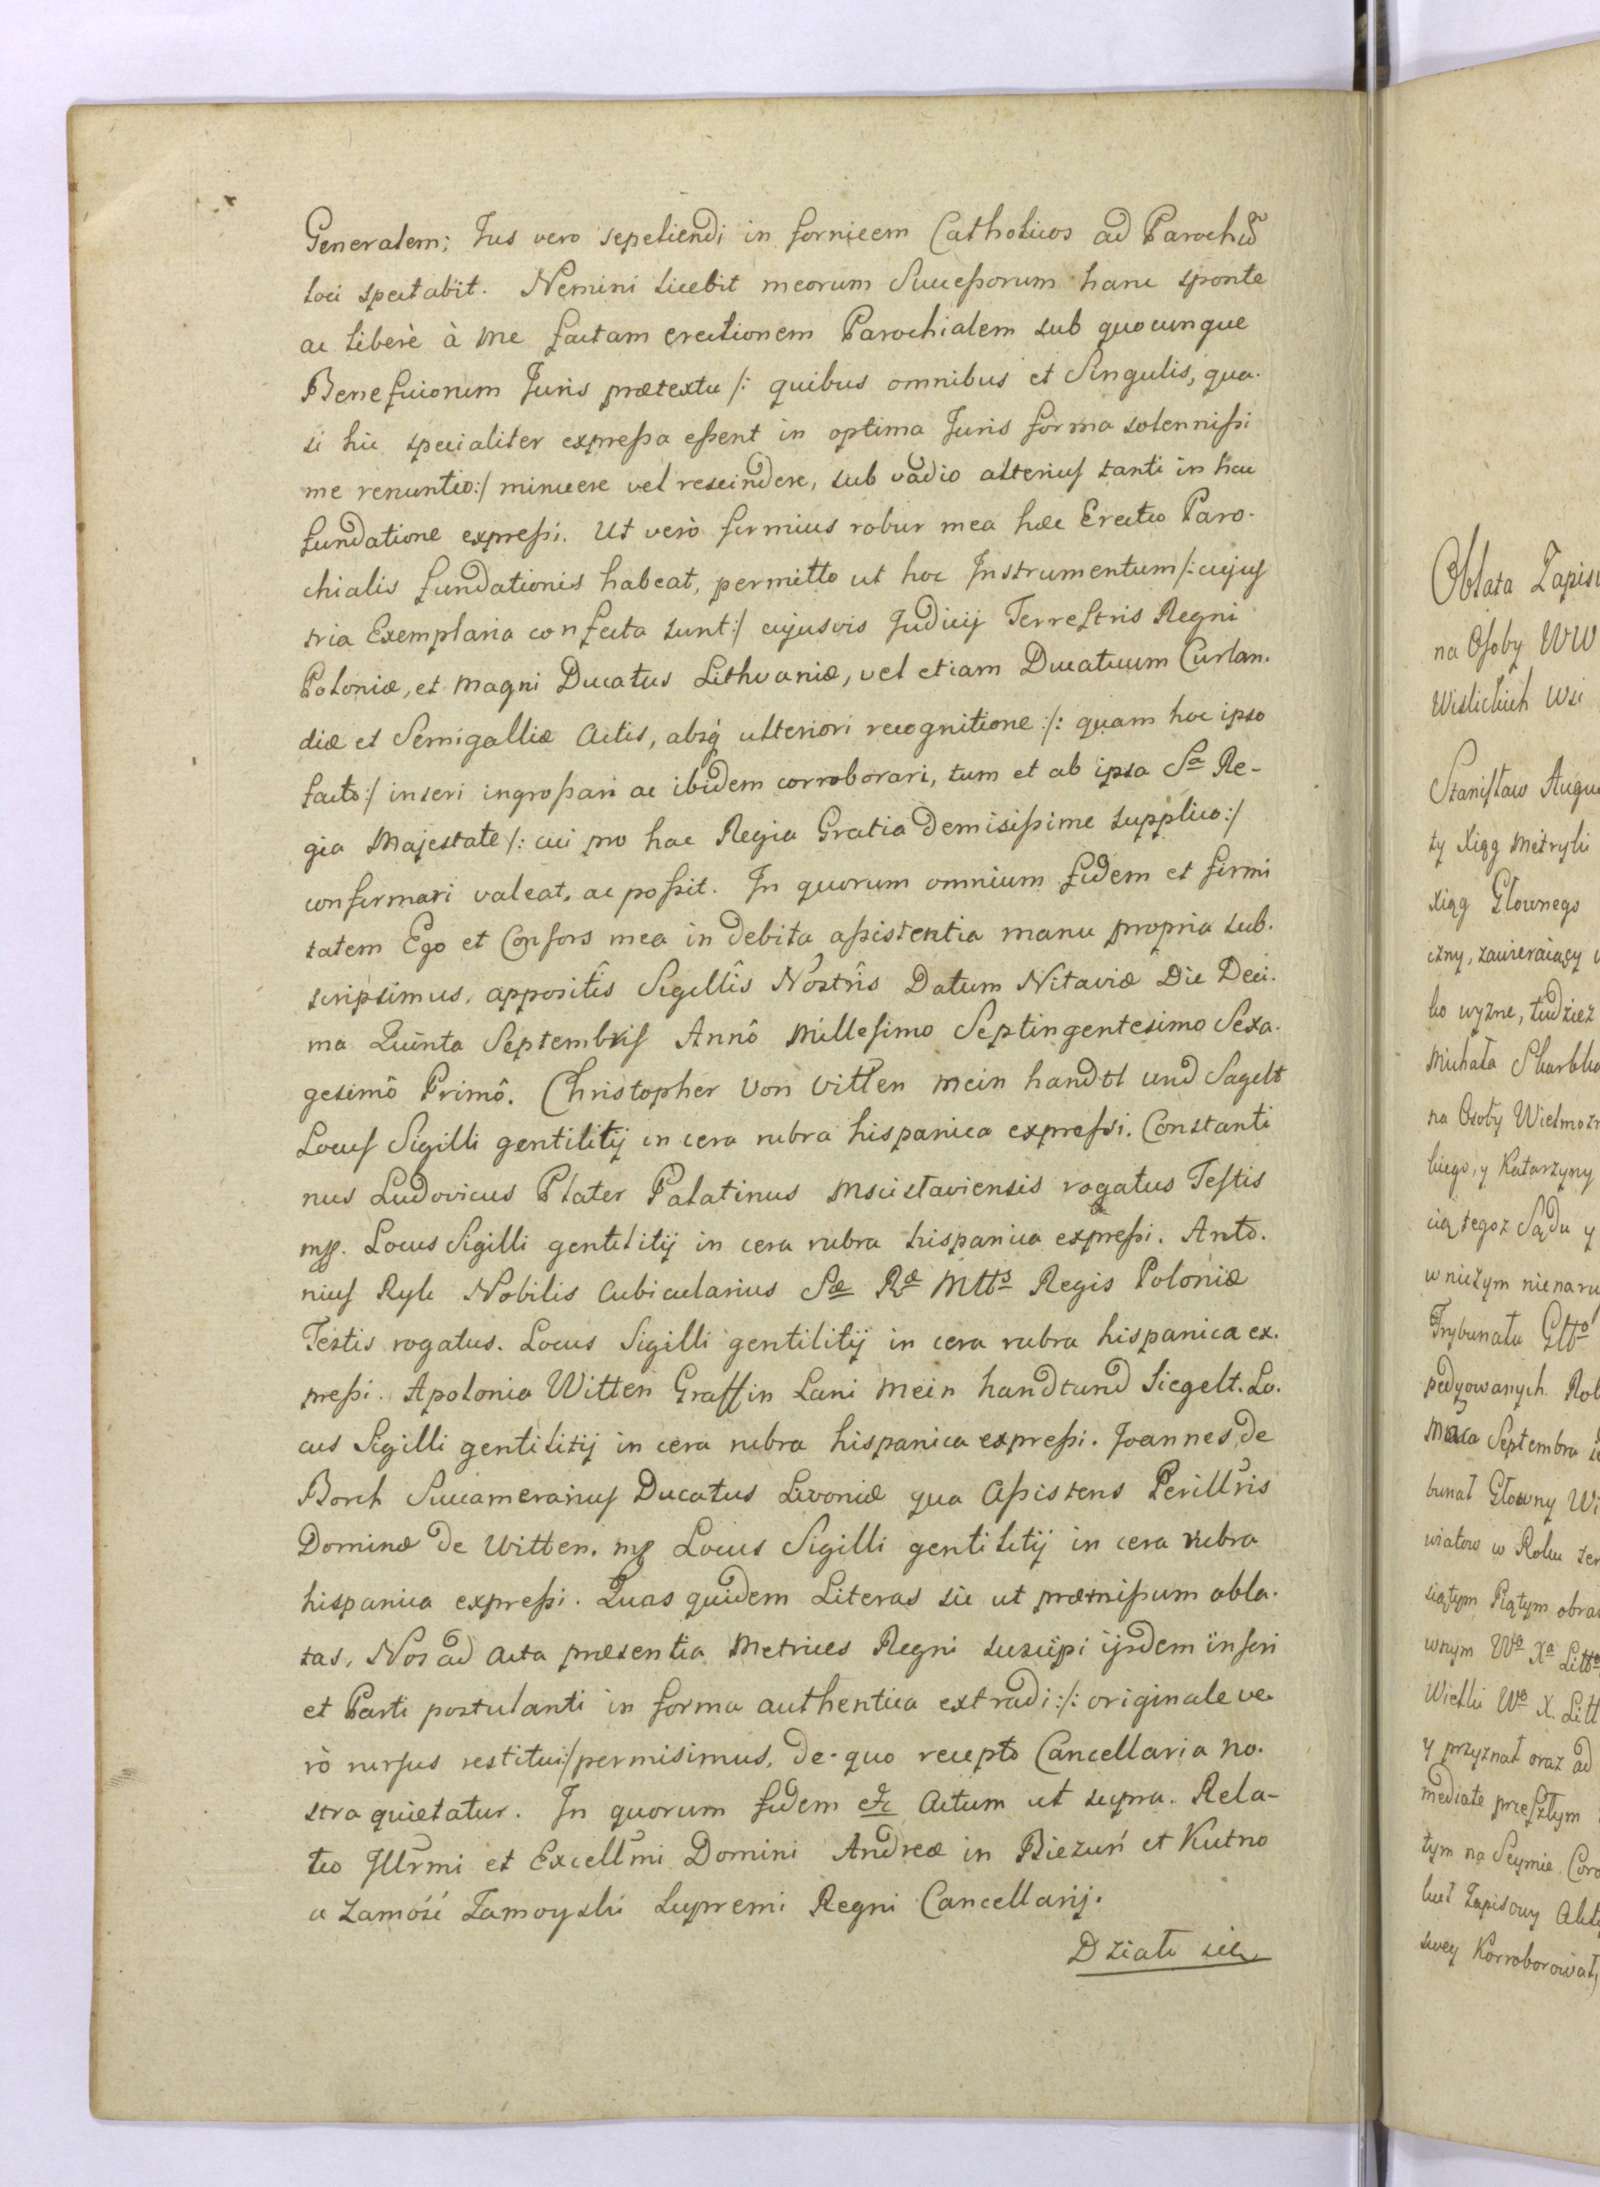 Generalem; Jus vero sepeliendi in fornicem Catholicos ad Parochũ
loci spectabit. Nemini licebit meorum Successorum hanc sponte
ac liberè à me factam erectionem Parochialem sub quocunque
Beneficiorum Juris prætextu /: quibus omnibus et Singulis, qua-
si hic specialiter expressa essent in optima Juris forma solennissi
me renuntio :/ minuere vel rescindere, sub vadio alterius tanti in hac
fundatione expressi. Ut verò firmius robur mea hæc Erectio Paro-
chialis fundationis habeat, permitto ut hoc Instrumentum /: cujus
tria Exemplaria confecta sunt :/ cujusvis Judicij Terrestris Regni
Poloniæ, et Magni Ducatus Lithvaniæ, vel etiam Ducatuum Curlan-
diæ et Semigalliæ Actis, absq́ ulteriori recognitione :/: quam hoc ipso
facto :/ inseri ingrossari ac ibidem corroborari, tum et ab ipsa Sa Re-
gia Majestate /: cui pro hac Regia Gratia demisissime supplico :/
confirmari valeat, ac possit. In quorum omnium fidem et firmi
tatem Ego et Consors mea in debita assistentia manu propria sub-
scripsimus, appositîs Sigillîs Nostrîs Datum Nitaviæ Die Deci-
ma Quinta Septembris Annô Millesimo Septingentesimo Sexa-
gesimô Primô. Christopher von Vitten mein handtt und Sagelt
Locus Sigilli gentilitij in cera rubra hispanica expressi. Constanti
nus Ludovicus Plater Palatinus Mscislaviensis rogatus Testis
mp. Locus Sigilli gentilitij in cera rubra hispanica expressi. Anto-
nius Ryk Nobilis Cubicularius Sæ Ræ Mtts Regis Poloniæ
Testis rogatus. Locus Sigilli gentilitij in cera rubra hispanica ex-
pressi. Apolonia Witten Graffin Lani mein handt und Siegelt. Lo-
cus Sigilli gentilitij in cera rubra hispanica expressi. Joannes de
Borch Succamerarius Ducatus Livoniæ qua Assistens Perillris
Dominæ de Witten. mp Locus Sigilli gentilitij in cera rubra
hispanica expressi. Quas quidem Literas sic ut præmissum obla-
tas, Nos ad Acta præsentia Metrices Regni suscipi ijsdem inseri
et Parti postulanti in forma authentica extradi :/: originale ve-
rò rursus restitui :/ permisimus, de quo recepto Cancellaria no-
stra quietatur. In quorum fidem etc Actum ut supra. Rela-
tio Jllrmi et Excellmi Domini Andreæ in Biezuń et Kutno
a Zamość Zamoyski Supremi Regni Cancellarij.
Działo się
Oblata Zapisu
na Osoby WW
Wislickich wsi
Stanisław Augu
ty Xiąg Metryki
Xiąg Głownego
czny, zawieraiący
ko wyzne, tudziez
Michała
na Osoby Wielmoz
y Katarzyny
cią tegoz Sądu y
w niczym nienaru
Trybunału Głło
pedyowanych Rol
Septembra
bunał Głowny Wi
wiatow w Roku
siątym Piątym obra
wnym Wo Xa Litto
Wielki Wo X. Litt
y przyznał oraz ad
mediate przeszłym
tym na Seymie Coro
Zapisowy
swey Korroborował,